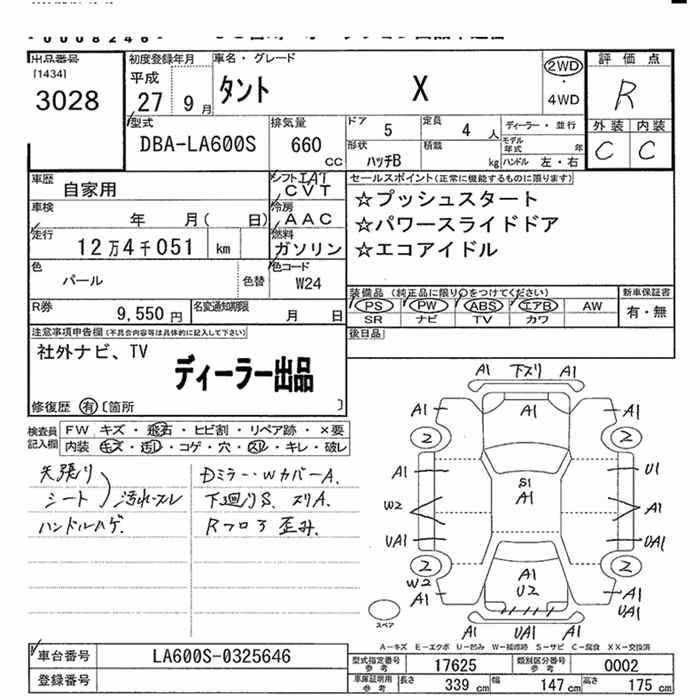 出品番号
[1434]
3028
初度登録年月
平成
27 9月
車名・グレード
タント X
2WD
・
4WD
評価点
R
外装 内装
C C
型式
DBA-LA600S
排気量
660
CC
ドア 5
定員 4 人
ディーラー・並行
形状
ハッチB
積載 kg
モデル年式 年
ハンドル 左・右
車歴
自家用
シフト IAT
CVT
車検
年 月( 日)
冷房
AAC
走行
12万4千051 km
燃料
ガソリン
色
パール
色替
色コード
W24
セールスポイント(正常に機能するものに限ります)
☆プッシュスタート
☆パワースライドドア
☆エコアイドル
R券
9,550円
名変通知期限
月 日
装備品(純正品に限り○をつけてください)
PS PW ABS エアB AW
SR ナビ TV カワ
新車保証書
有・無
後日品
注意事項申告欄(不具合内容等は具体的に記入して下さい)
社外ナビ、TV
ディーラー出品
修復歴 有 〔箇所 〕
検査員
記入欄
FW キズ・飛石・ヒビ割・リペア跡・×要
内装 キズ・汚し・コゲ・穴・スレ・キレ・破レ
天張り
シート
汚れ・スレ
ハンドルハゲ.
Dミラー・WカバーA.
下廻りS. スリA.
Rフロア歪み.
A1 下スリ A1
A1 A1
2 2
A1 U1
S1
A1
W2 A1
UA1 UA1
2 2
W2
A1
A1
U2
A1
UA1
UA1 A1
スペア
A-キズ E-エクボ U-凹み W-補修跡 S-サビ C-腐食 XX-交換済
車台番号
LA600S-0325646
登録番号
型式指定番号
参考
17625
類別区分番号
参考
0002
車庫証明用
参考
長さ 339cm 幅 147cm 高さ 175cm